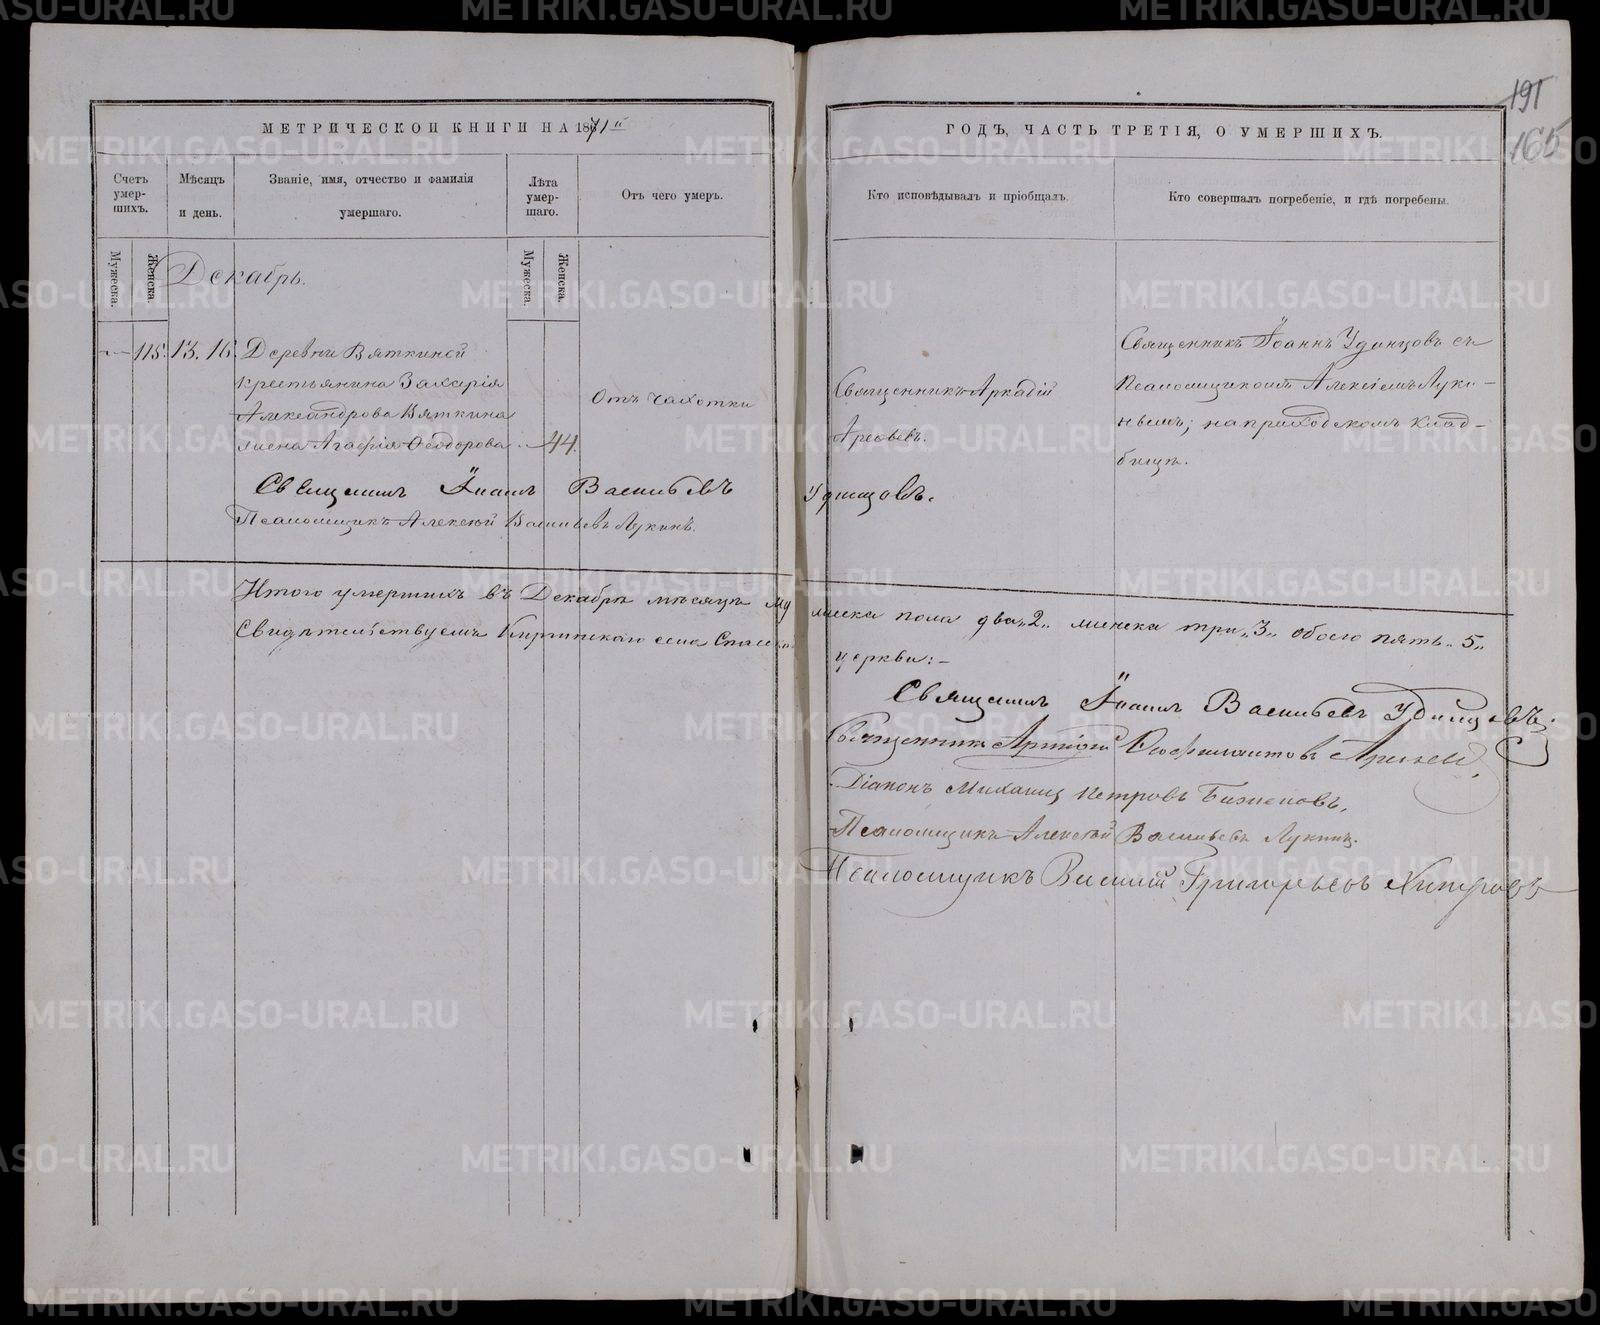 МЕТРИЧЕСКОЙ КНИГИ НА 1871й
Счетъ умер-шихъ.
Мѣсяцъ и день.
Званіе, имя, отчество и фамилія умершаго.
Лѣта умер-шаго.
Отъ чего умеръ.
Мужеска.
Женска.
Мужеска.
Женска.
Декабрь.
115. 13. 16. Деревни Вяткиной
крестьянина Захарія
Александрова Вяткина
жена Агафія Ѳеодорова 44.
Отъ чахотки
Священникъ Іоаннъ Васильевъ
Псаломщикъ Алексѣй Васильевъ Лукинъ.
Итого умершихъ въ Декабрѣ мѣсяцѣ му
Свидѣтельствуемъ села
191
165
ГОДЪ, ЧАСТЬ ТРЕТІЯ, О УМЕРШИХЪ.
Кто исповѣдывалъ и пріобщалъ.
Кто совершалъ погребеніе, и гдѣ погребены.
Священникъ Аркадій
Арефьевъ.
Священникъ Іоаннъ Удинцовъ съ
Псаломщикомъ Алексіемъ Луки-
нымъ; на приходскомъ клад-
бищѣ.
Удинцовъ.
жеска пола два „2„ женска три „3„ обоего пять „5„
церкви:-
Священникъ Іоаннъ Васильевъ Удинцовъ.
Священникъ Арефьевъ
Діаконъ Михаилъ Петровъ
Псаломщикъ Алексѣй Васильевъ Лукинъ.
Псаломщикъ Василій Григорьевъ
METRIKI.GASO-URAL.RU